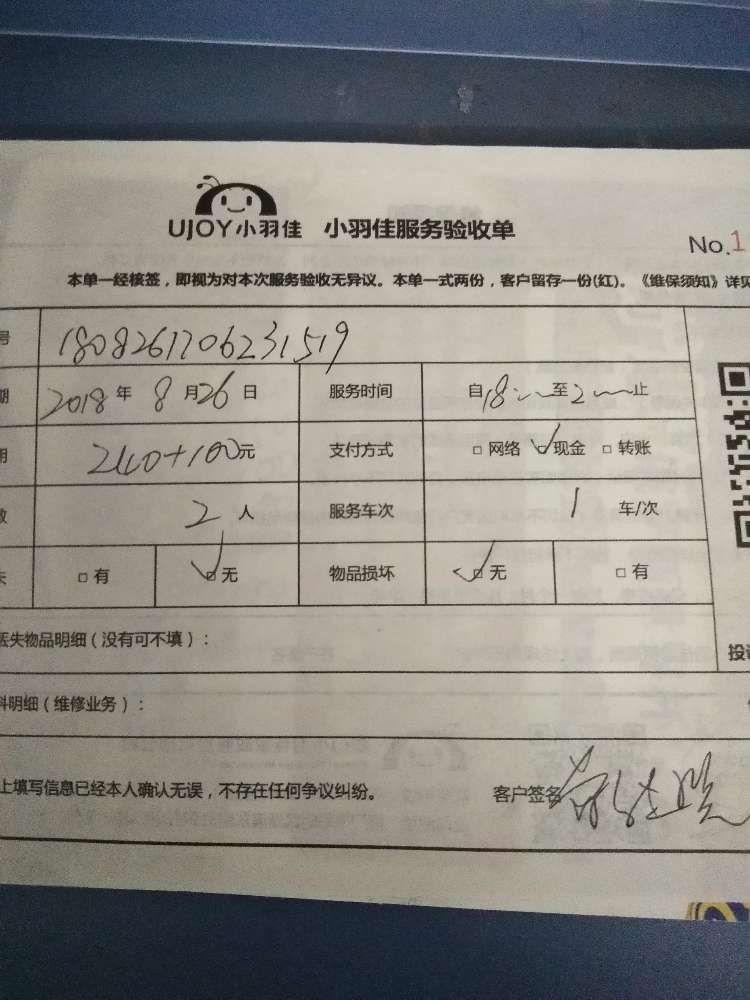 UJOY小羽佳 小羽佳服务验收单
No.1
本单一经核签，即视为对本次服务验收无异议。本单一式两份，客户留存一份(红)。《维保须知》详见
号 1808261706231519
期 2018年8月26日 服务时间 自18 至2 止
用 240+100元 支付方式 □网络 ✓现金 □转账
数 2人 服务车次 1车/次
失 □有 ✓□无 物品损坏 ✓□无 □有
丢失物品明细（没有可不填）： 投诉
料明细（维修业务）：
上填写信息已经本人确认无误，不存在任何争议纠纷。 客户签名